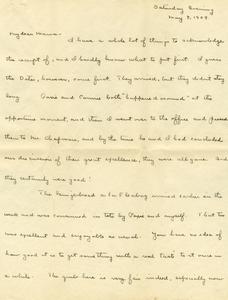 Saturday Evening
May 8, 1909
My dear Mama-
I have a whole lot of things to acknowledge
the receipt of, and I hardly know what to put first. I guess
the Dates, however, come first. They arrived, but they didn't stay
long. and Connie both "happened around" at the
opportune moment, and then I went over to the office and passed
them to Mr. Chapman, and by the time he and I had concluded
our discussion of their great excellence, they were all gone. And
they certainly were good!
The Gingerbread arrived earlier in the
week and was consumed in toto by and myself. That too
was excellent and enjoyable as usual. You have no idea of
how good it is to get something with a real taste to it once in
a while. The grub here is very fair indeed, especially now